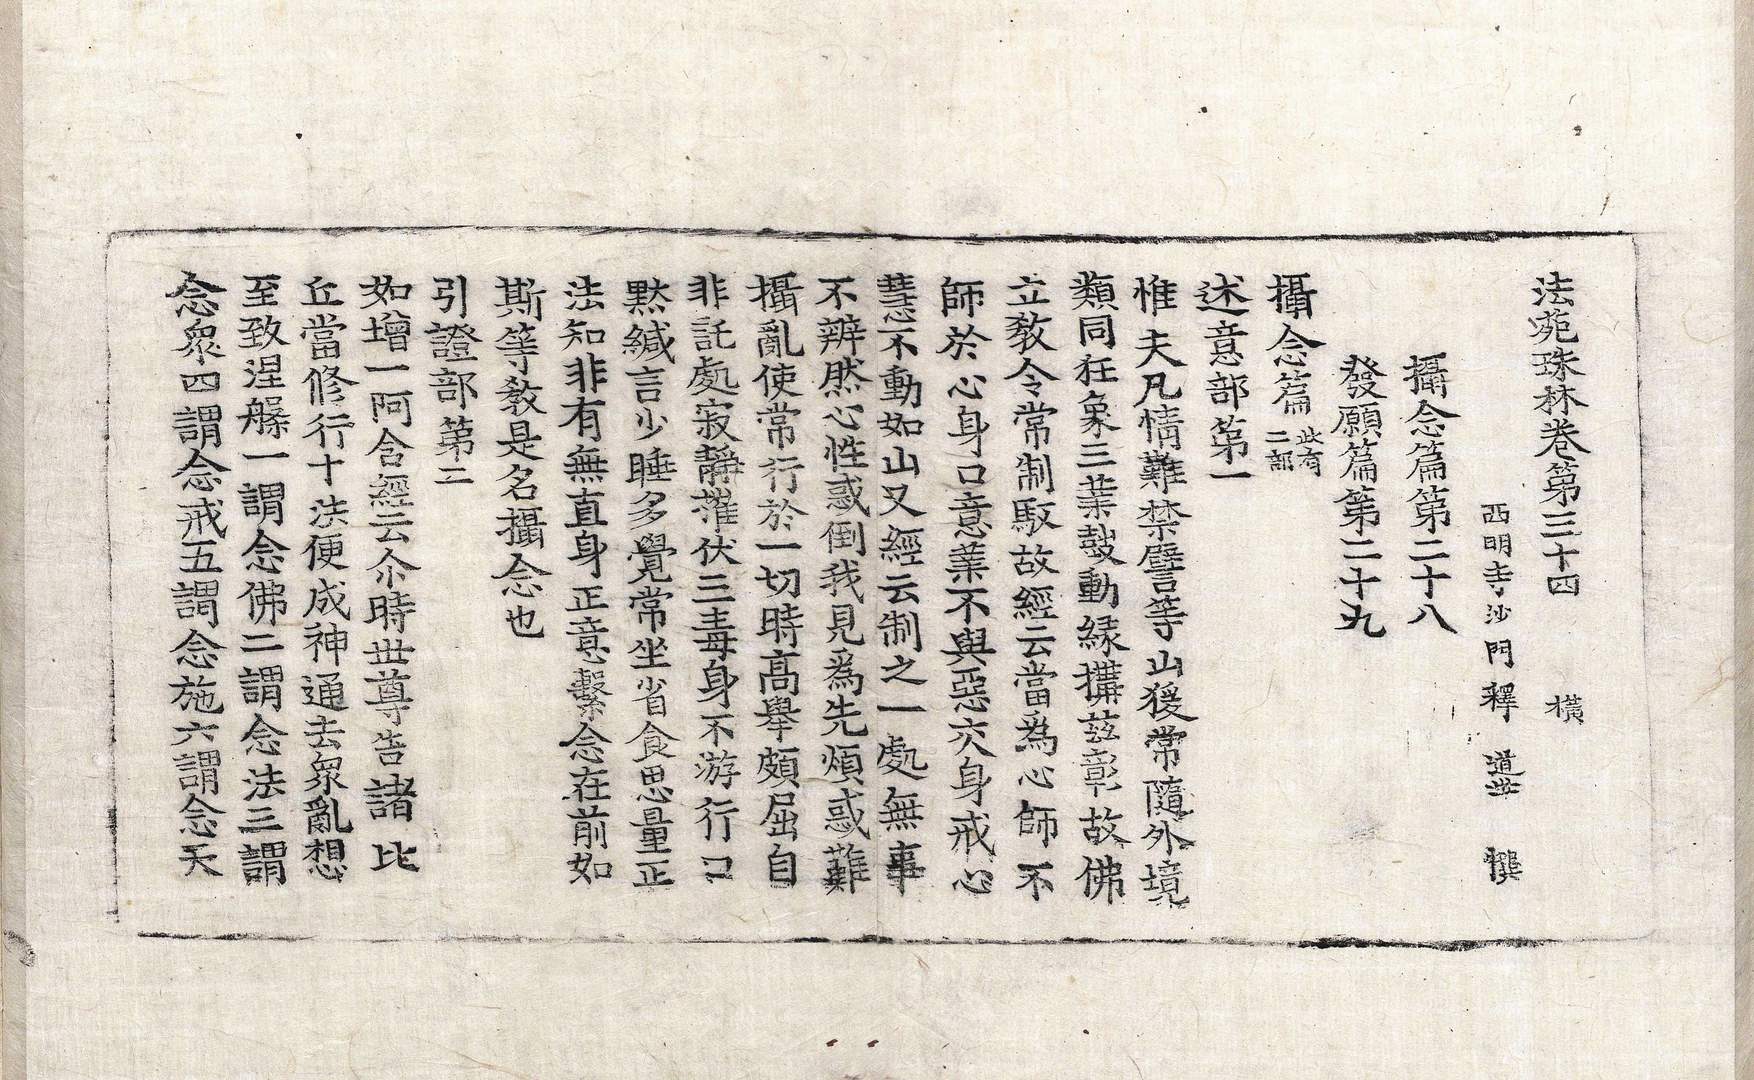 法苑珠林卷第三十四 橫
西明寺沙門釋 道世 撰
攝念篇第二十八
發願篇第二十九
攝念篇 此有二部
述意部第一
惟夫凡情難禁譬等山猨常隨外境
類同狂象三業鼓動緣搆玆彰故佛
立教令常制馭故經云當爲心師不
師於心身口意業不與惡交身戒心
慧不動如山又經云制之一處無事
不辨然心性惑倒我見爲先煩惑難
攝亂使常行於一切時高舉頗屈自
非託處寂靜摧伏三毒身不游行口
默緘言少睡多覺常坐省食思量正
法知非有無直身正意繫念在前如
斯等教是名攝念也
引證部第二
如增一阿含經云尒時世尊告諸比
丘當修行十法便成神通去衆亂想
至致涅槃一謂念佛二謂念法三謂
念衆四謂念戒五謂念施六謂念天